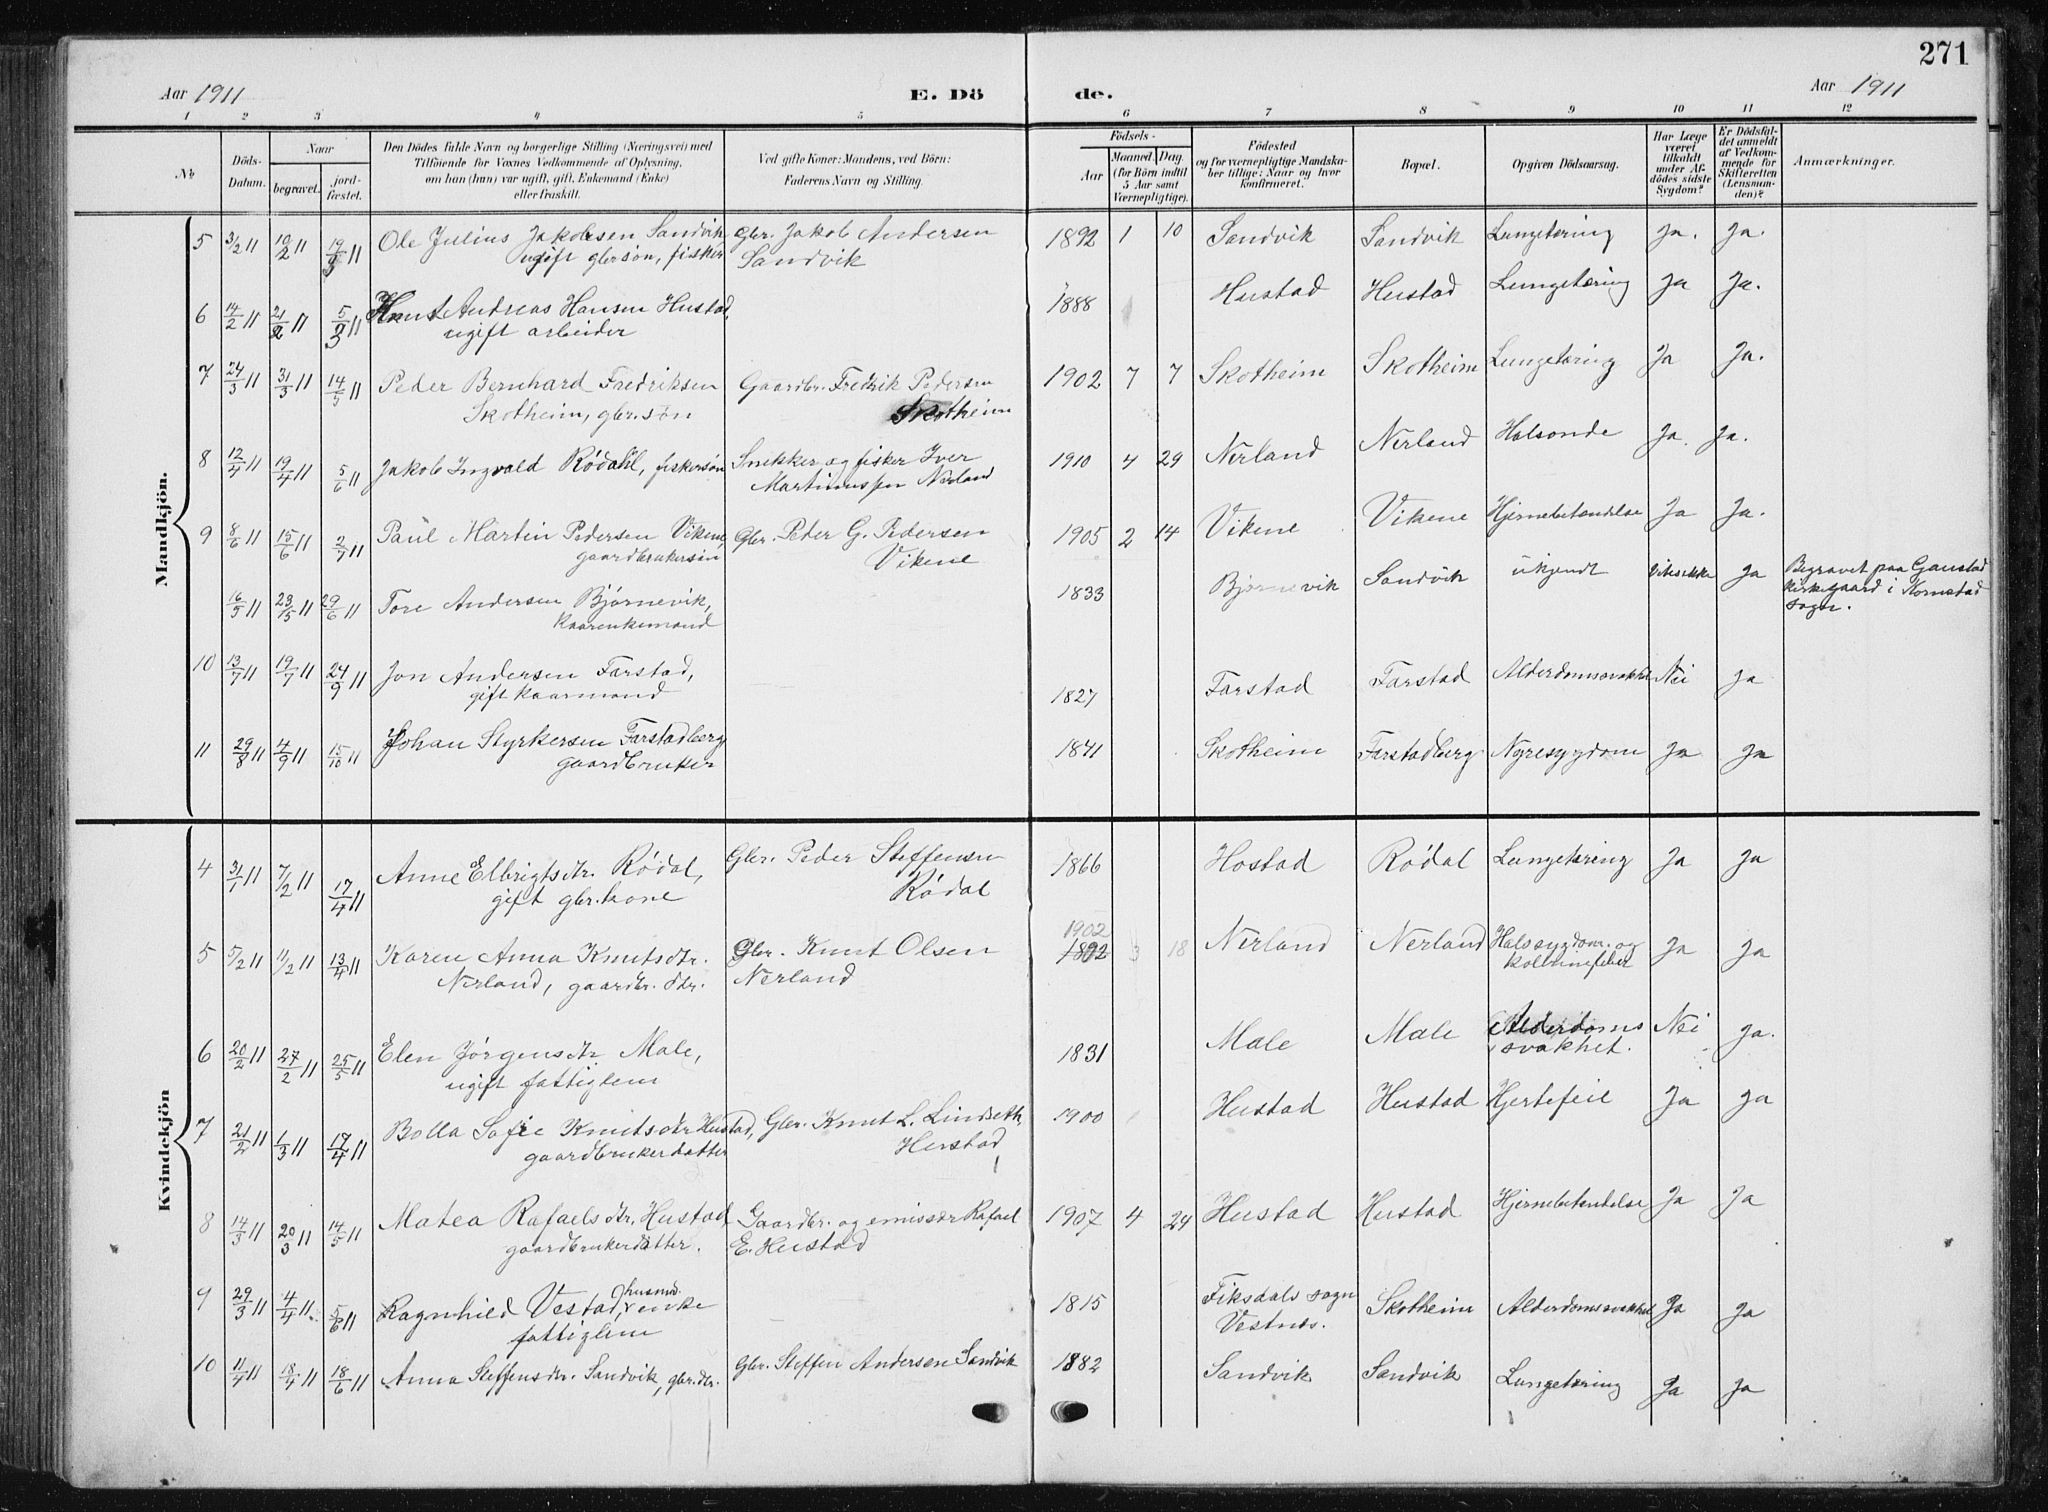 271
Aar 1911 E. Dö de. Aar 1911
1 2 3 4 5 6 7 8 9 10 11 12
№
Döds-Datum.
Naar
begravet.
jord-fæstet.
Den Dödes fulde Navn og borgerlige Stilling (Næringsvei) med
Tilföiende for Voxnes Vedkommende af Oplysning,
om han (hun) var ugift, gift, Enkemand (Enke)
eller fraskilt.
Ved gifte Koner: Mandens, ved Börn:
Faderens Navn og Stilling.
Födsels-
Aar
Maaned. Dag.
(for Börn indtil
5 Aar samt
Værnepligtige).
Födested
og for værnepligtige Mandska-
ber tillige: Naar og hvor
konfirmeret.
Bopæl.
Opgiven Dödsaarsag.
Har Læge
været
tilkaldt
under Af-
dödes sidste
Sygdom?
Er Dödsfal-
det anmeldt
af Vedkom-
mende for
Skifteretten
(Lensman-
den)?
Anmærkninger.
Mandkjön.
5 3/2 11 10/2 11 19/3 11 Ole Julius Jakobsen Sandvik Gbr. Jakob Andersen 1892 1 10 Sandvik Sandvik Lungetæring Ja. Ja.
ugift gbrsön, fisker Sandvik
6 14/2 11 21/2 11 5/3 11 Knut Andreas Hansen Hustad, 1888 Hustad Hustad Lungetæring Ja Ja.
ugift arbeider
7 24/3 11 31/3 11 14/5 11 Peder Bernhard Fredriksen Gaardbr. Fredrik Pedersen 1902 7 7 Skotheim Skotheim Lungetæring Ja Ja.
Skotheim, gbr. sön Skotheim
8 12/4 11 19/4 11 5/6 11 Jakob Ingvald Rödahl, fiskersön Snikker og fisker Iver 1910 4 29 Nerland Nerland Halsonde Ja. Ja.
Martinussen Nerland
9 8/6 11 15/6 11 2/7 11 Paul Martin Pedersen Vikene, Gbr. Peter G. Pedersen 1905 2 14 Vikene Vikene Hjernebetændelse Ja Ja.
gaardbrukersön Vikene
16/5 11 23/5 11 29/6 11 Tore Andersen Björnevik, 1833 Bjørnevik Sandvik ukjendt Vites ikke Ja Begravet paa Gaustad
kaarenkemand kirkegaard i Kornstad
sogn.
10 13/7 11 19/7 11 24/9 11 Jon Andersen Farstad, 1827 Farstad Farstad Alderdomssvakhet Nei Ja
gift kaarmand
11 29/8 11 4/9 11 15/10 11 Johan Styrkersen Farstadberg 1841 Skotheim Farstadberg Nyresygdom Ja Ja
gaardbruker
Kvindekjön
4 31/1 11 7/2 11 17/4 11 Anne Elbrigtsdtr. Rödal, Gbr. Peder Steffensen 1866 Hostad Rödal Lungetæring Ja Ja
gift gbr. kone Rödal
1902
5 5/2 11 11/2 11 13/4 11 Karen Anna Knutsdtr. Gbr. Knut Olsen 1892 3 18 Nerland Nerland Halssygdom og Ja Ja
Nerland, gaardbr. dtr. Nerland
6 20/2 11 27/2 11 25/5 11 Elen Jörgensdtr Male, 1831 Male Male Alderdoms Nei Ja.
ugift fattiglem svakhet.
7 21/2 11 1/3 11 17/4 11 Bolla Sofie Knutsdtr Hustad, Gbr. Knut L. Lindseth, 1900 Hustad Hustad Hjertefeil Ja Ja
gaardbrukerdatter Hustad
8 14/3 11 20/3 11 14/5 11 Matea Rafaelsdtr. Hustad Gaardbr. og emissær Rafael 1907 4 24 Hustad Hustad Hjernebetændelse Ja Ja
gaardbrukerdatter. E. Hustad
9 29/3 11 4/4 11 5/6 11 Ragnhild Vestad, husmd. enke 1815 Fiksdals sogn Skotheim Alderdomssvakhet Ja Ja
fattiglem Vestnes.
10 11/4 11 18/4 11 18/6 11 Anna Steffensdtr. Sandvik, gbr. dtr. Gbr. Steffen Andersen Sandvik 1882 Sandvik Sandvik Lungetæring Ja Ja